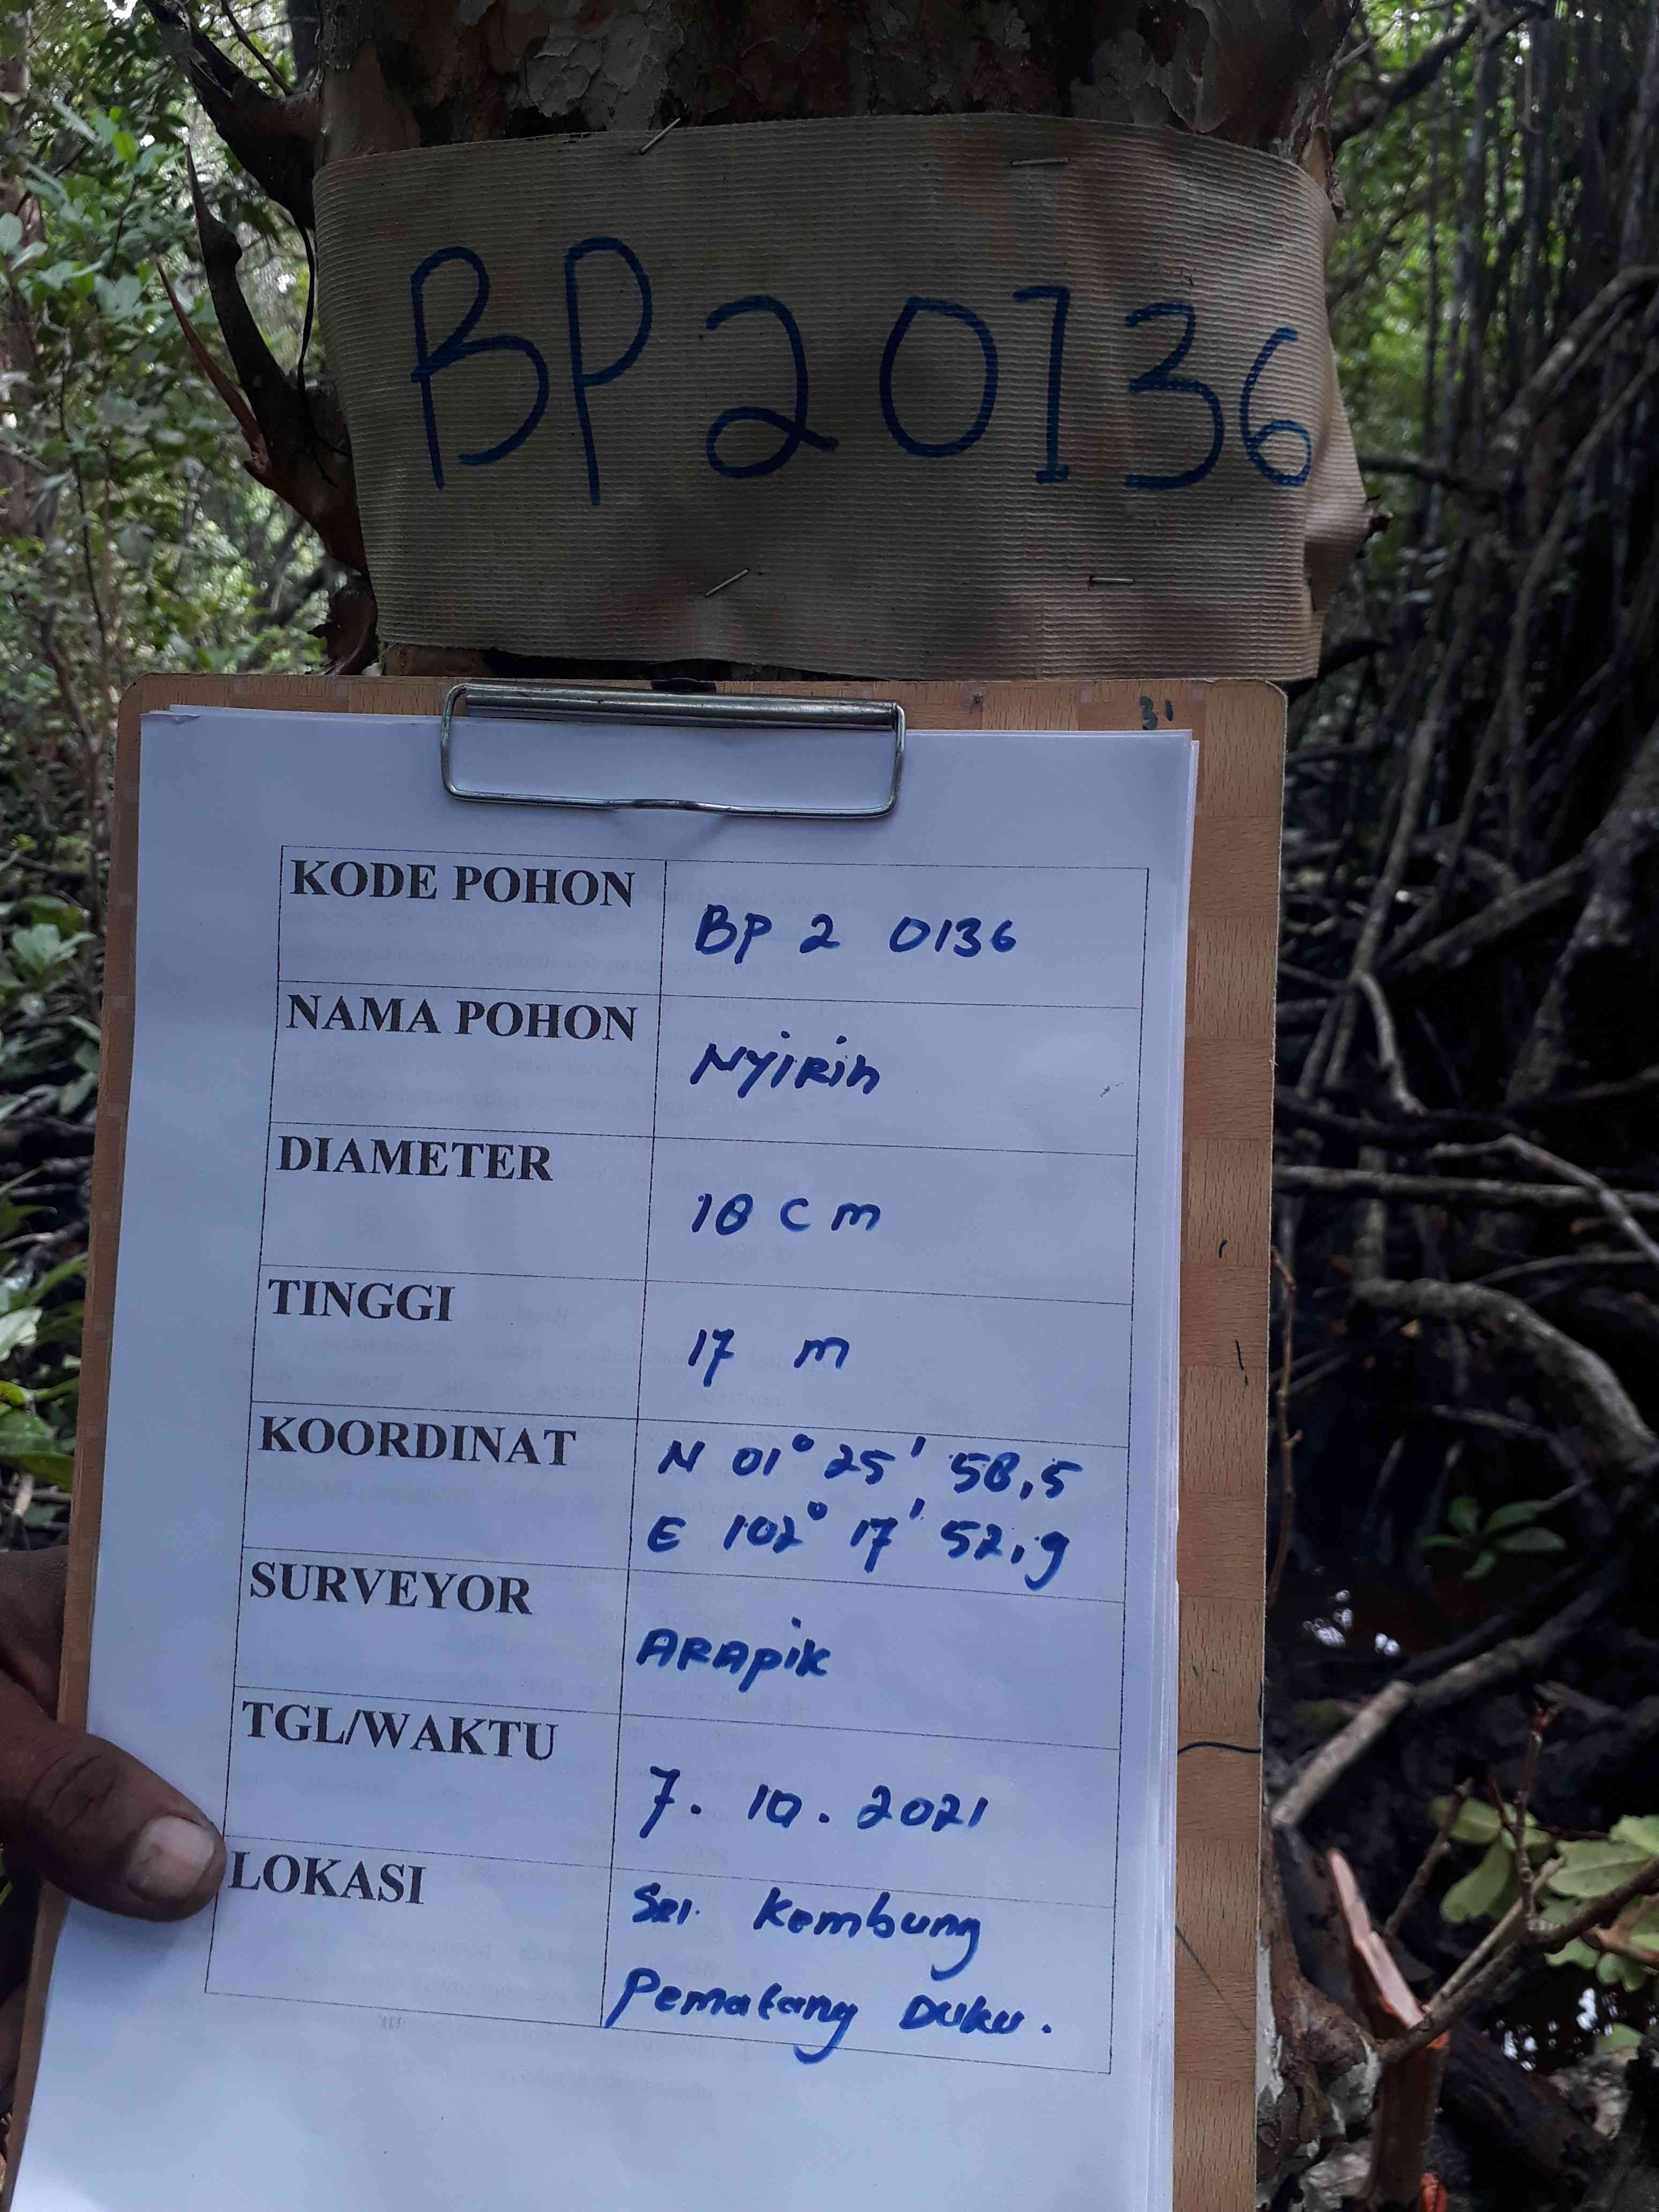 BP20136
31
KODE POHON
BP 2 0136
NAMA POHON
Nyirih
DIAMETER
18 cm
TINGGI
17 m
KOORDINAT
N 01° 25' 58,5
E 102° 17' 52,9
SURVEYOR
ARAPik
TGL/WAKTU
7. 10. 2021
LOKASI
Sei. Kembung
Pematang Duku.